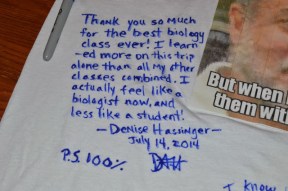 Thank you so much
for the best biology
class ever! I learn
-ed more on this trip
alone than all my other
classes combined. I
actually feel like a
biologist now, and
less like a student!
- Denise Hassinger -
July 14, 2014
P.S. 100%
But when
them wit
I know